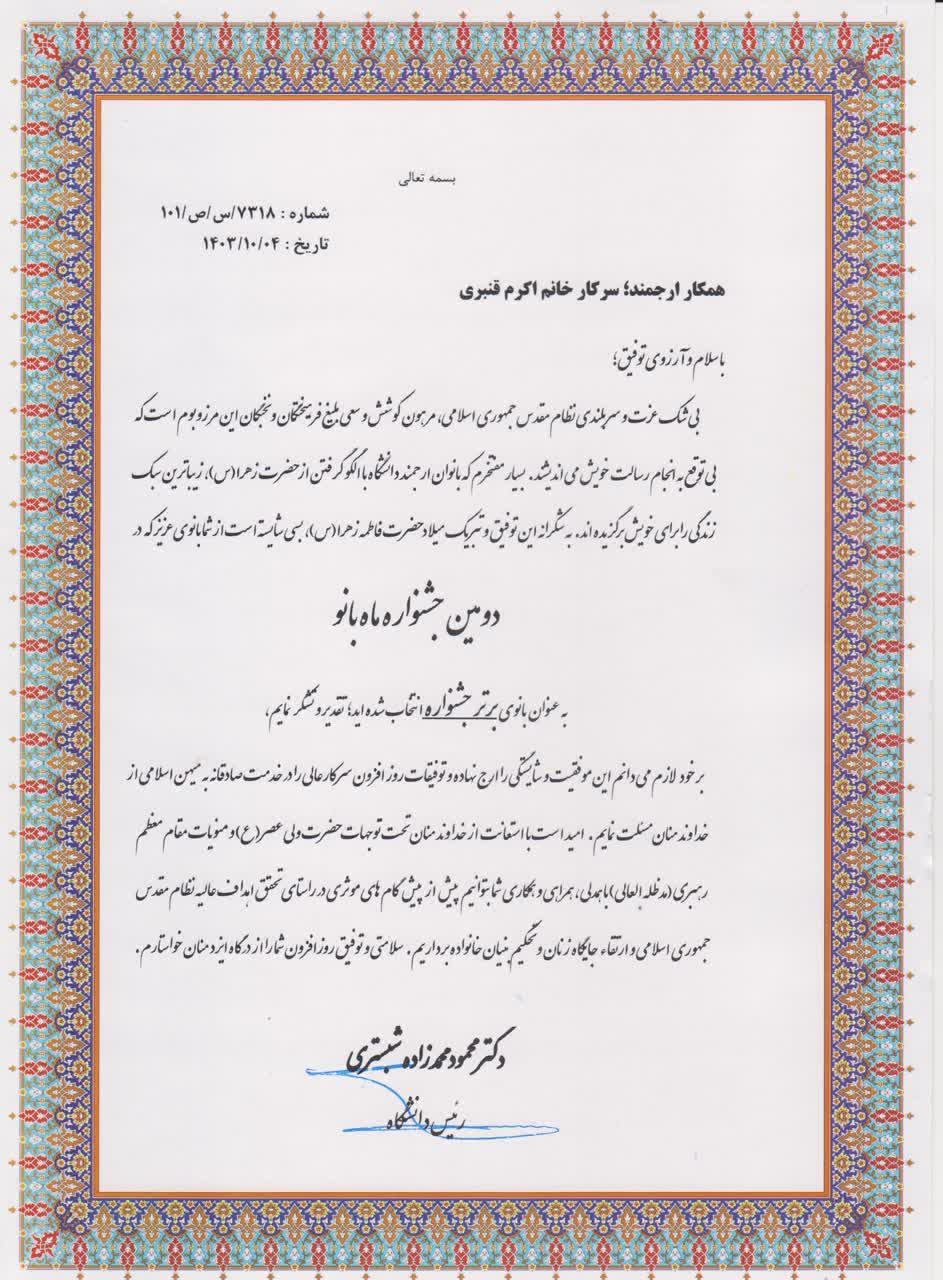 بسمه تعالی
شماره : ۷۳۱۸/س/ص/۱۰۱
تاریخ : ۱۴۰۳/۱۰/۰۴
همکار ارجمند؛ سرکار خانم اکرم قنبری
با سلام و آرزوی توفیق؛
بی شک عزت و سربلندی نظام مقدس جمهوری اسلامی، مرهون کوشش و سعی بلیغ فرهیختگان و نخبگان این مرز و بوم است که
بی توقع به انجام رسالت خویش می اندیشند. بسیار مفتخرم که بانوان ارجمند دانشگاه با الگو گرفتن از حضرت زهرا(س)، زیباترین سبک
زندگی را برای خویش برگزیده اند. به شکرانه این توفیق و تبریک میلاد حضرت فاطمه زهرا(س)، بسی شایسته است از شما بانوی عزیز که در
دومین جشنواره ماه بانو
به عنوان بانوی برتر جشنواره انتخاب شده اید؛ تقدیر و تشکر نمایم،
بر خود لازم می دانم این موفقیت و شایستگی را ارج نهاده و توفیقات روز افزون سرکار عالی را در خدمت صادقانه به میهن اسلامی از
خداوند منان مسئلت نمایم. امید است با استعانت از خداوند منان تحت توجهات حضرت ولی عصر(ع) و منویات مقام معظم
رهبری (مدظله العالی) با همدلی، همراهی و همکاری شما بتوانیم بیش از پیش گام های موثری در راستای تحقق اهداف عالیه نظام مقدس
جمهوری اسلامی و ارتقاء جایگاه زنان و تحکیم بنیان خانواده برداریم. سلامتی و توفیق روز افزون شما را از درگاه ایزد منان خواستارم.
دکتر محمود محمدزاده شبستری
رئیس دانشگاه